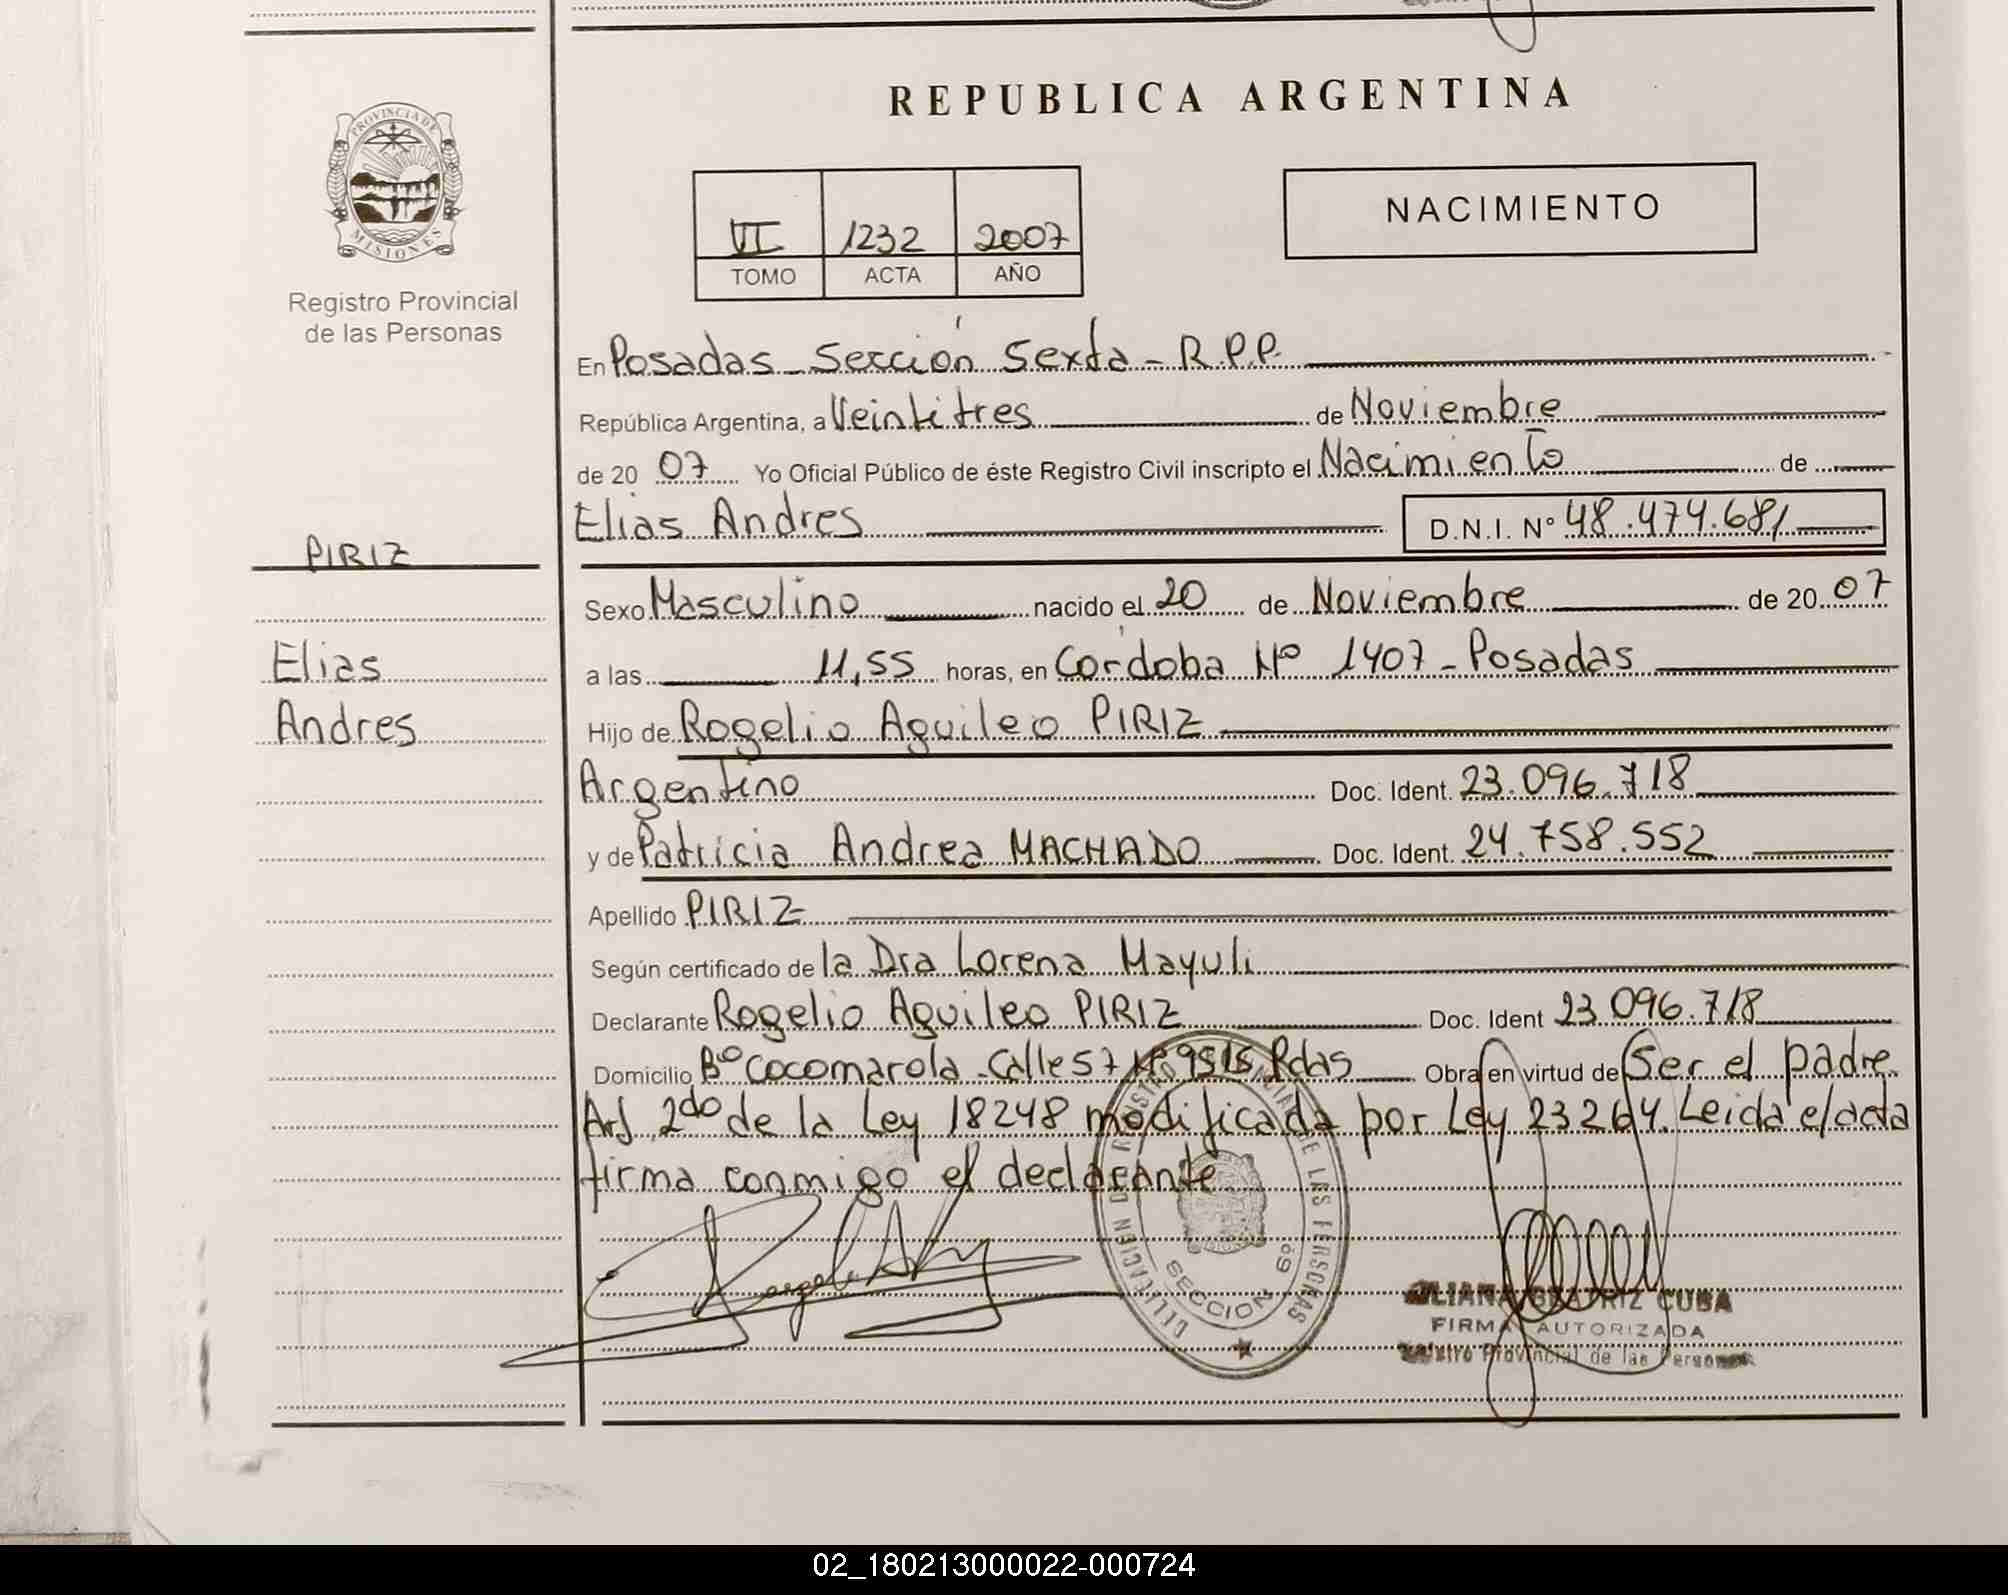 REPUBLICA ARGENTINA
PROVINCIA DE
MISIONES
Registro Provincial
de las Personas
VI 1232 2007
TOMO ACTA AÑO
NACIMIENTO
En Posadas - Sección Sexta - R.P.P.
República Argentina, a Veintitres de Noviembre
de 20 07 Yo Oficial Público de éste Registro Civil inscripto el Nacimiento de
Elias Andres D.N.I. Nº 48.474.681
PIRIZ
Sexo Masculino nacido el 20 de Noviembre de 20 07
Elias
a las 11,55 horas, en Córdoba Nº 1407 - Posadas
Andres
Hijo de Rogelio Aguileo PIRIZ
Argentino Doc. Ident. 23.096.718
y de Patricia Andrea MACHADO Doc. Ident. 24.758.552
Apellido PIRIZ
Según certificado de la Dra Lorena Mayuli
Declarante Rogelio Aguileo PIRIZ Doc. Ident 23.096.718
Domicilio Bº Cocomarola - Calle 57 Nº Pdas Obra en virtud de Ser el padre
Art 2do de la Ley 18248 modificada por Ley 23264. Leida el acta
firma conmigo el declarante
DELEGACION DE LAS PERSONAS
SECCION 6º
BEATRIZ CUBA
FIRMA AUTORIZADA
Registro Provincial de las Personas
02_180213000022-000724